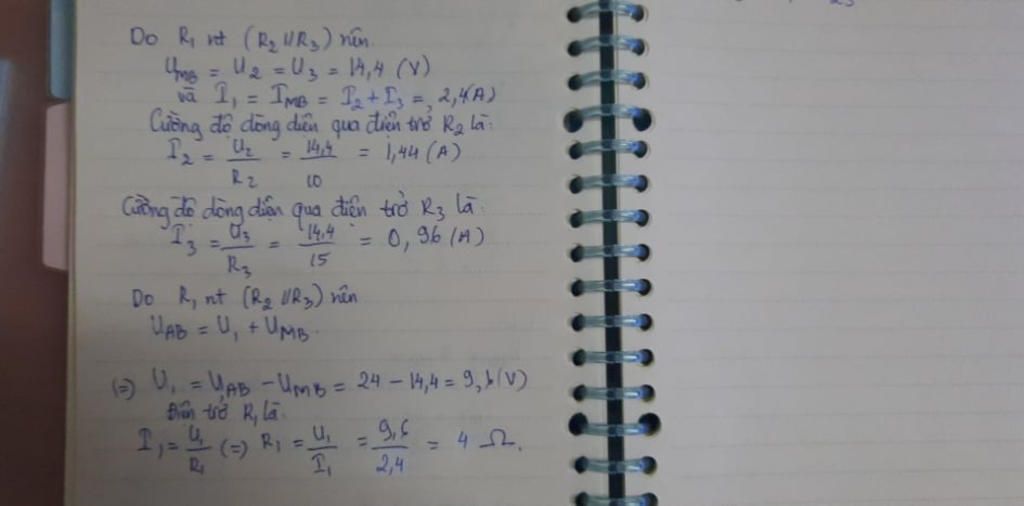 Do R₁ nt (R₂ // R₃) nên
U_MB = U₂ = U₃ = 14,4 (V)
và I₁ = I_MB = I₂ + I₃ = 2,4(A)
Cường độ dòng điện qua điện trở R₂ là:
I₂ = U₂/R₂ = 14,4/10 = 1,44 (A)
Cường độ dòng điện qua điện trở R₃ là:
I₃ = U₃/R₃ = 14,4/15 = 0,96 (A)
Do R₁ nt (R₂ // R₃) nên
U_AB = U₁ + U_MB.
(=) U₁ = U_AB - U_MB = 24 - 14,4 = 9,6 (V)
Điện trở R₁ là:
I₁ = U₁/R₁ (=) R₁ = U₁/I₁ = 9,6/2,4 = 4 Ω.